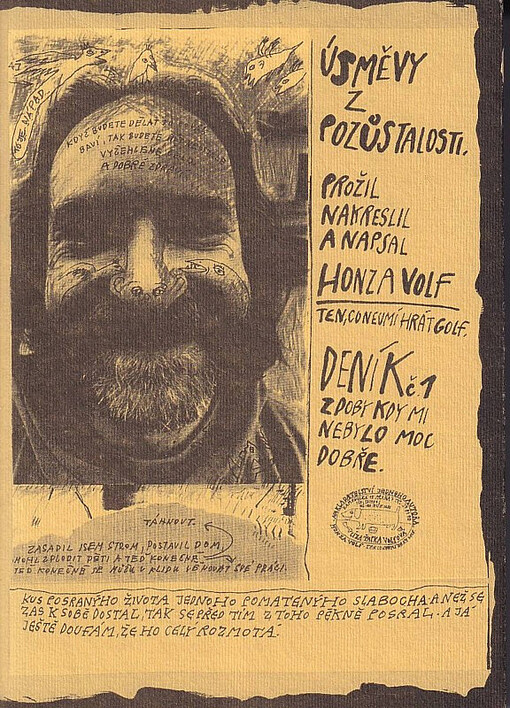 ÚSMĚVY
Z
POZŮSTALOSTI.
PROŽIL
NAKRESLIL
A NAPSAL
HONZA VOLF
TEN, CO NEUMÍ HRÁT GOLF.
DENÍK č.1
Z DOBY KDY MI
NEBYLO MOC
DOBŘE.
KDYŽ BUDETE DĚLAT
BAVÍ, TAK BUDETE
VYŽEHLENÉ
A DOBRÉ
TÁHNOUT.
ZASADIL JSEM STROM, POSTAVIL DŮM,
MOHL ZPLODIT DĚTI A TEĎ KONEČNĚ
TEĎ KONEČNĚ SE MŮŽU V KLIDU VĚNOVAT SVÉ PRÁCI.
KUS POSRANÝHO ŽIVOTA JEDNOHO POMATENÝHO SLABOCHA. A NEŽ SE
ZAS K SOBĚ DOSTAL, TAK SE PŘED TÍM Z TOHO PĚKNĚ POSRAL. A JÁ
JEŠTĚ DOUFÁM, ŽE HO CELÝ ROZMOTÁ.